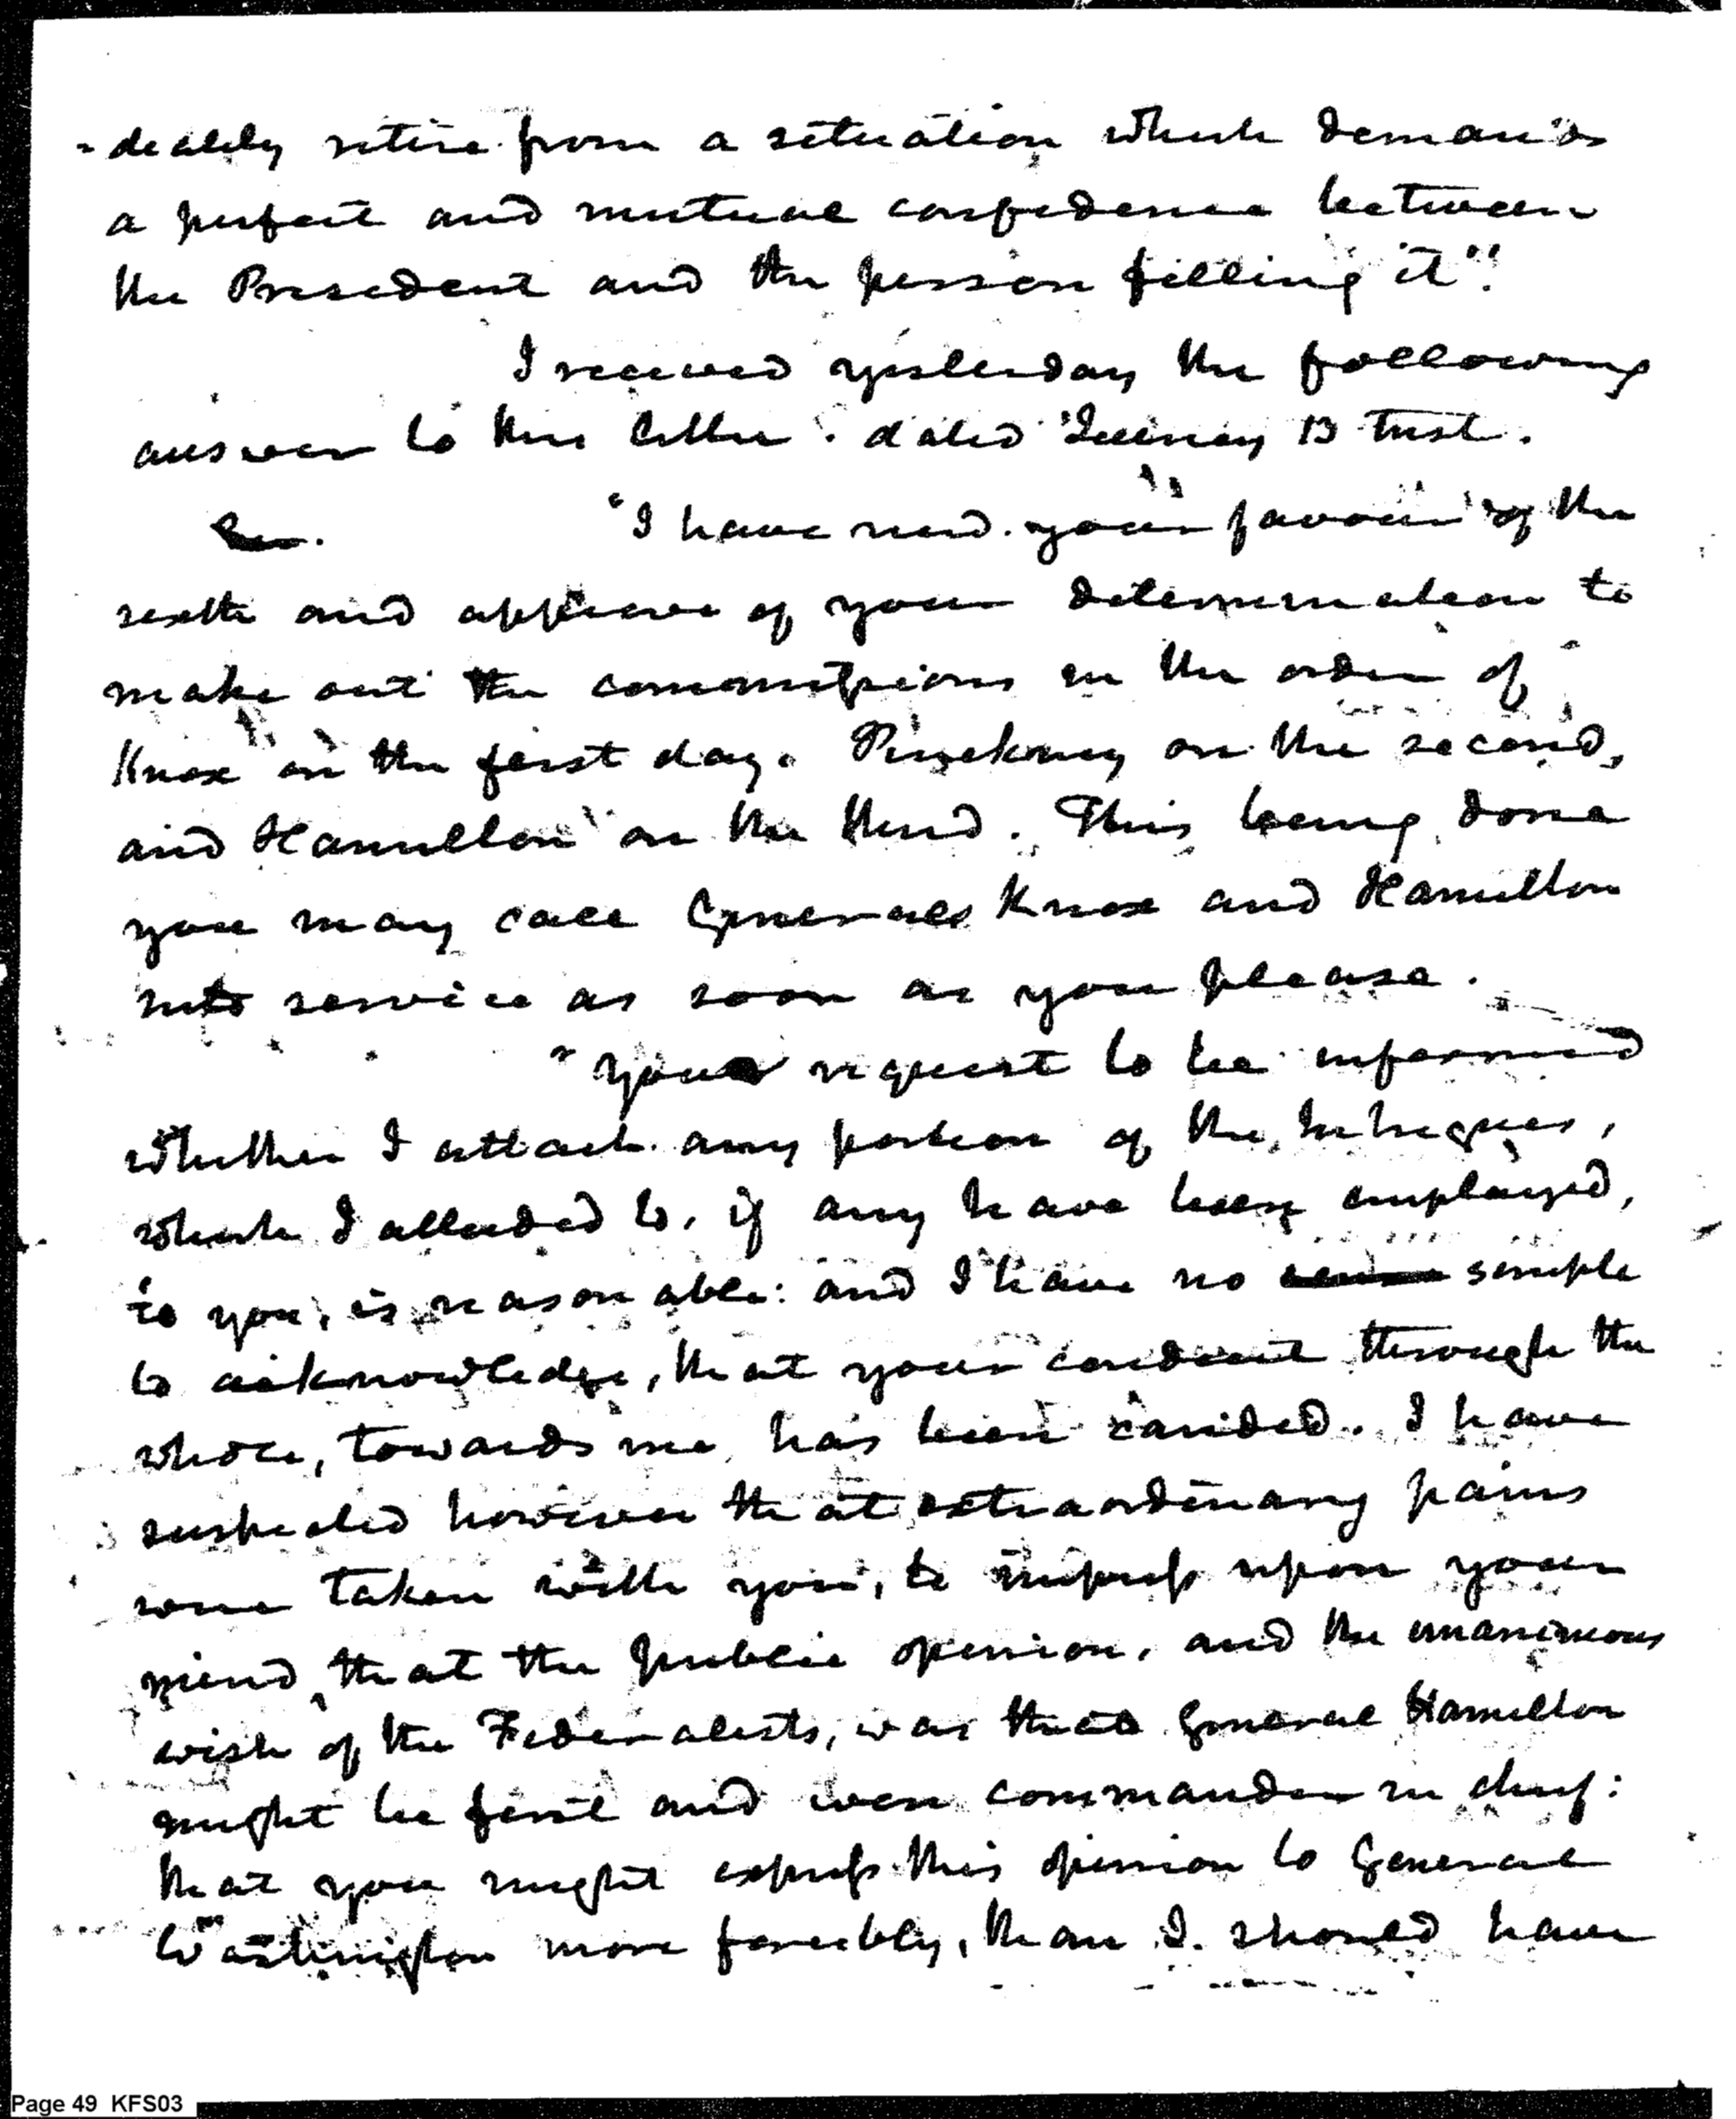 -deality retire from a situation which demands
a perfect and mutual confidence between
the President and the person filling it".
I received yesterday the following
answer to this letter. dated Quincy 13 Inst.
Sir. "I have recd. your favour of the
sixth and approve of your determination to
make out the commissions in the order of
Knox on the first day. Pinckney on the second,
and Hamilton on the third. This being done
you may call Generals Knox and Hamilton
into service as soon as you please.
"Your request to be informed
whether I attach any portion of the, Intrigues,
which I alluded to, if any have been employed,
to you, is reasonable: and I have no scruple
to acknowledge, that your conduct through the
whole, towards me, has been candid. I have
suspected however that extraordinary pains
were taken with you, to impress upon your
mind, that the public opinion, and the unanimous
wish of the Federalists, was that General Hamilton
might be first and even commander in chief:
that you might express this opinion to General
Washington more forcibly, than I should have
Page 49 KFS03